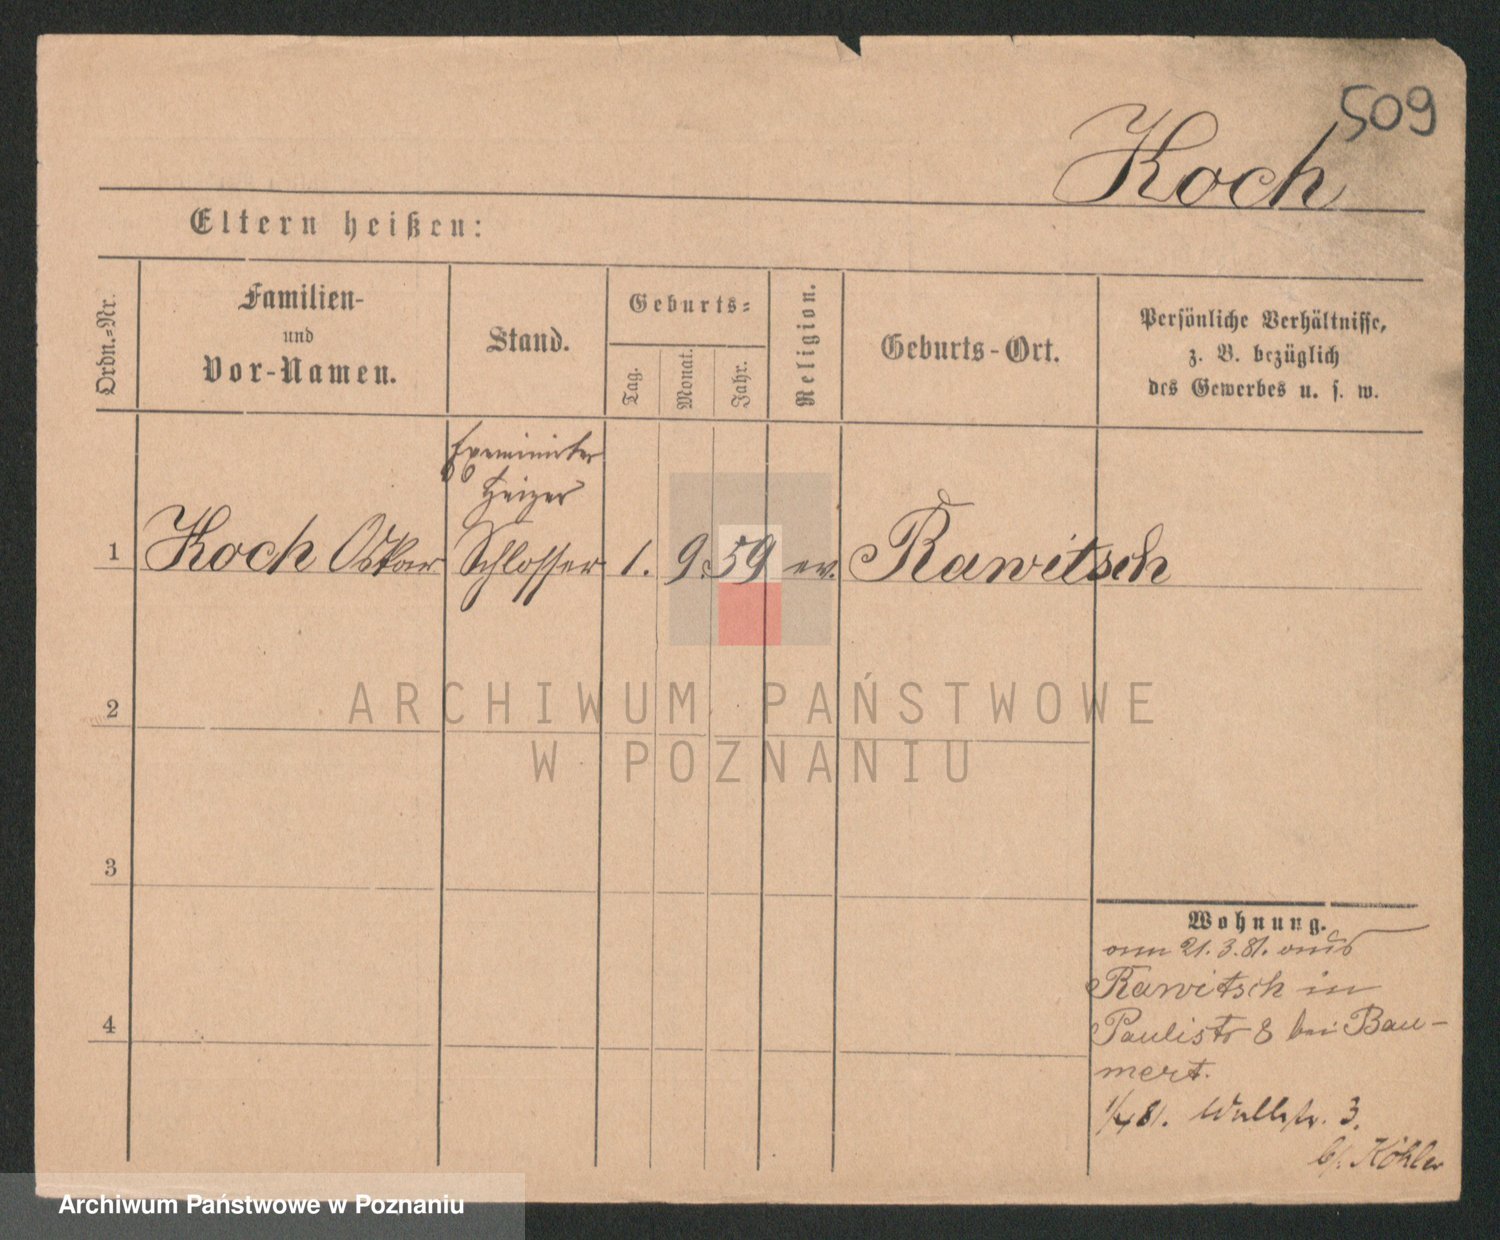 509
Koch
Eltern heißen:
Ordn.-Nr.
Familien-
und
Vor-Namen.
Stand.
Geburts-
Tag.
Monat.
Jahr.
Religion.
Geburts-Ort.
Persönliche Verhältnisse,
z. B. bezüglich
des Gewerbes u. s. w.
Heizer
1 Koch Oskar Schlosser 1. 9. 59 ev. Rawitsch
2
ARCHIWUM PAŃSTWOWE
W POZNANIU
3
4
Wohnung.
am 21.3.81. aus
Rawitsch in
Paulistr 8 bei Bau-
mert.
1/4 81. Wallstr. 3.
b/. Köhler
Archiwum Państwowe w Poznaniu